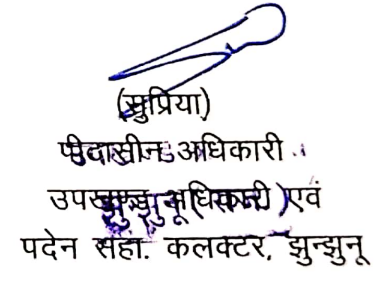 (सुप्रिया)
पीदासीन अधिकारी
उपखण्ड अधिकारी एवं
पदेन सहा. कलक्टर, झुन्झुनू